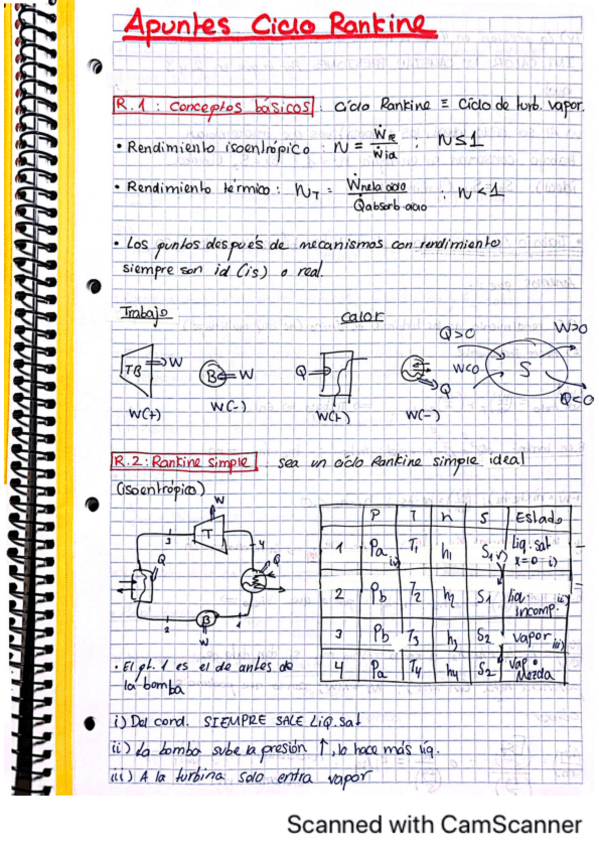 Apuntes Ciclo Rankine
R.1: Conceptos básicos : Ciclo Rankine ≡ Ciclo de turb. vapor.
• Rendimiento isoentrópico : n = ẆR / Ẇid ; n≤1
• Rendimiento térmico : nT = Ẇneta ciclo / Q̇absorb ciclo ; n<1
• Los puntos después de mecanismos con rendimiento
siempre son id (is) o real.
Trabajo
Calor
TB W B W Q Q Q>0 W>0 W<0 S Q<0
W(+) W(-) W(+) W(-)
R.2: Rankine simple : sea un ciclo Rankine simple ideal
(isoentrópico)
W T 3 4 Q Q 2 B 1 W
P T h S Estado
1 Pa iv) T1 h1 S1 v) liq. sat x=0 i)
2 Pb T2 h2 S1 liq incomp. ii)
3 Pb T3 h3 S2 vapor iii)
4 Pa T4 h4 S2 Vap. Mezcla
• El pt. 1 es el de antes de
la bomba
i) Del cond. SIEMPRE SALE LIQ. Sat
ii) La bomba sube la presión ↑, lo hace más líq.
iii) A la turbina solo entra vapor
Scanned with CamScanner